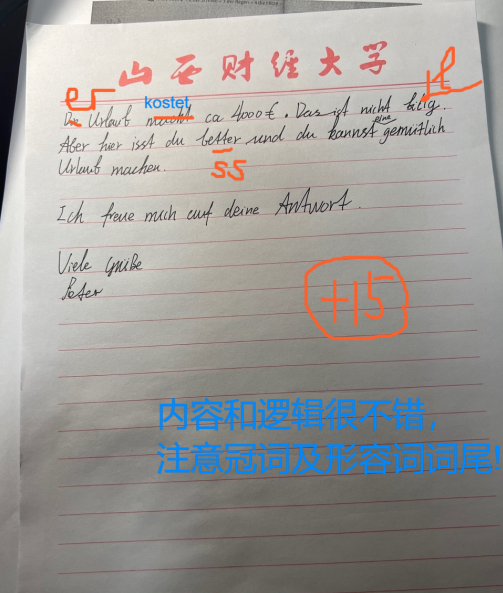 山西财经大学
er
kostet
ll
Die Urlaub macht ca 4000€. Das ist nicht bilig.
eine
Aber hier isst du better und du kannst gemütlich
ss
Urlaub machen.
Ich freue mich auf deine Antwort.
Viele Grüße
Peter
+15
内容和逻辑很不错，
注意冠词及形容词词尾!